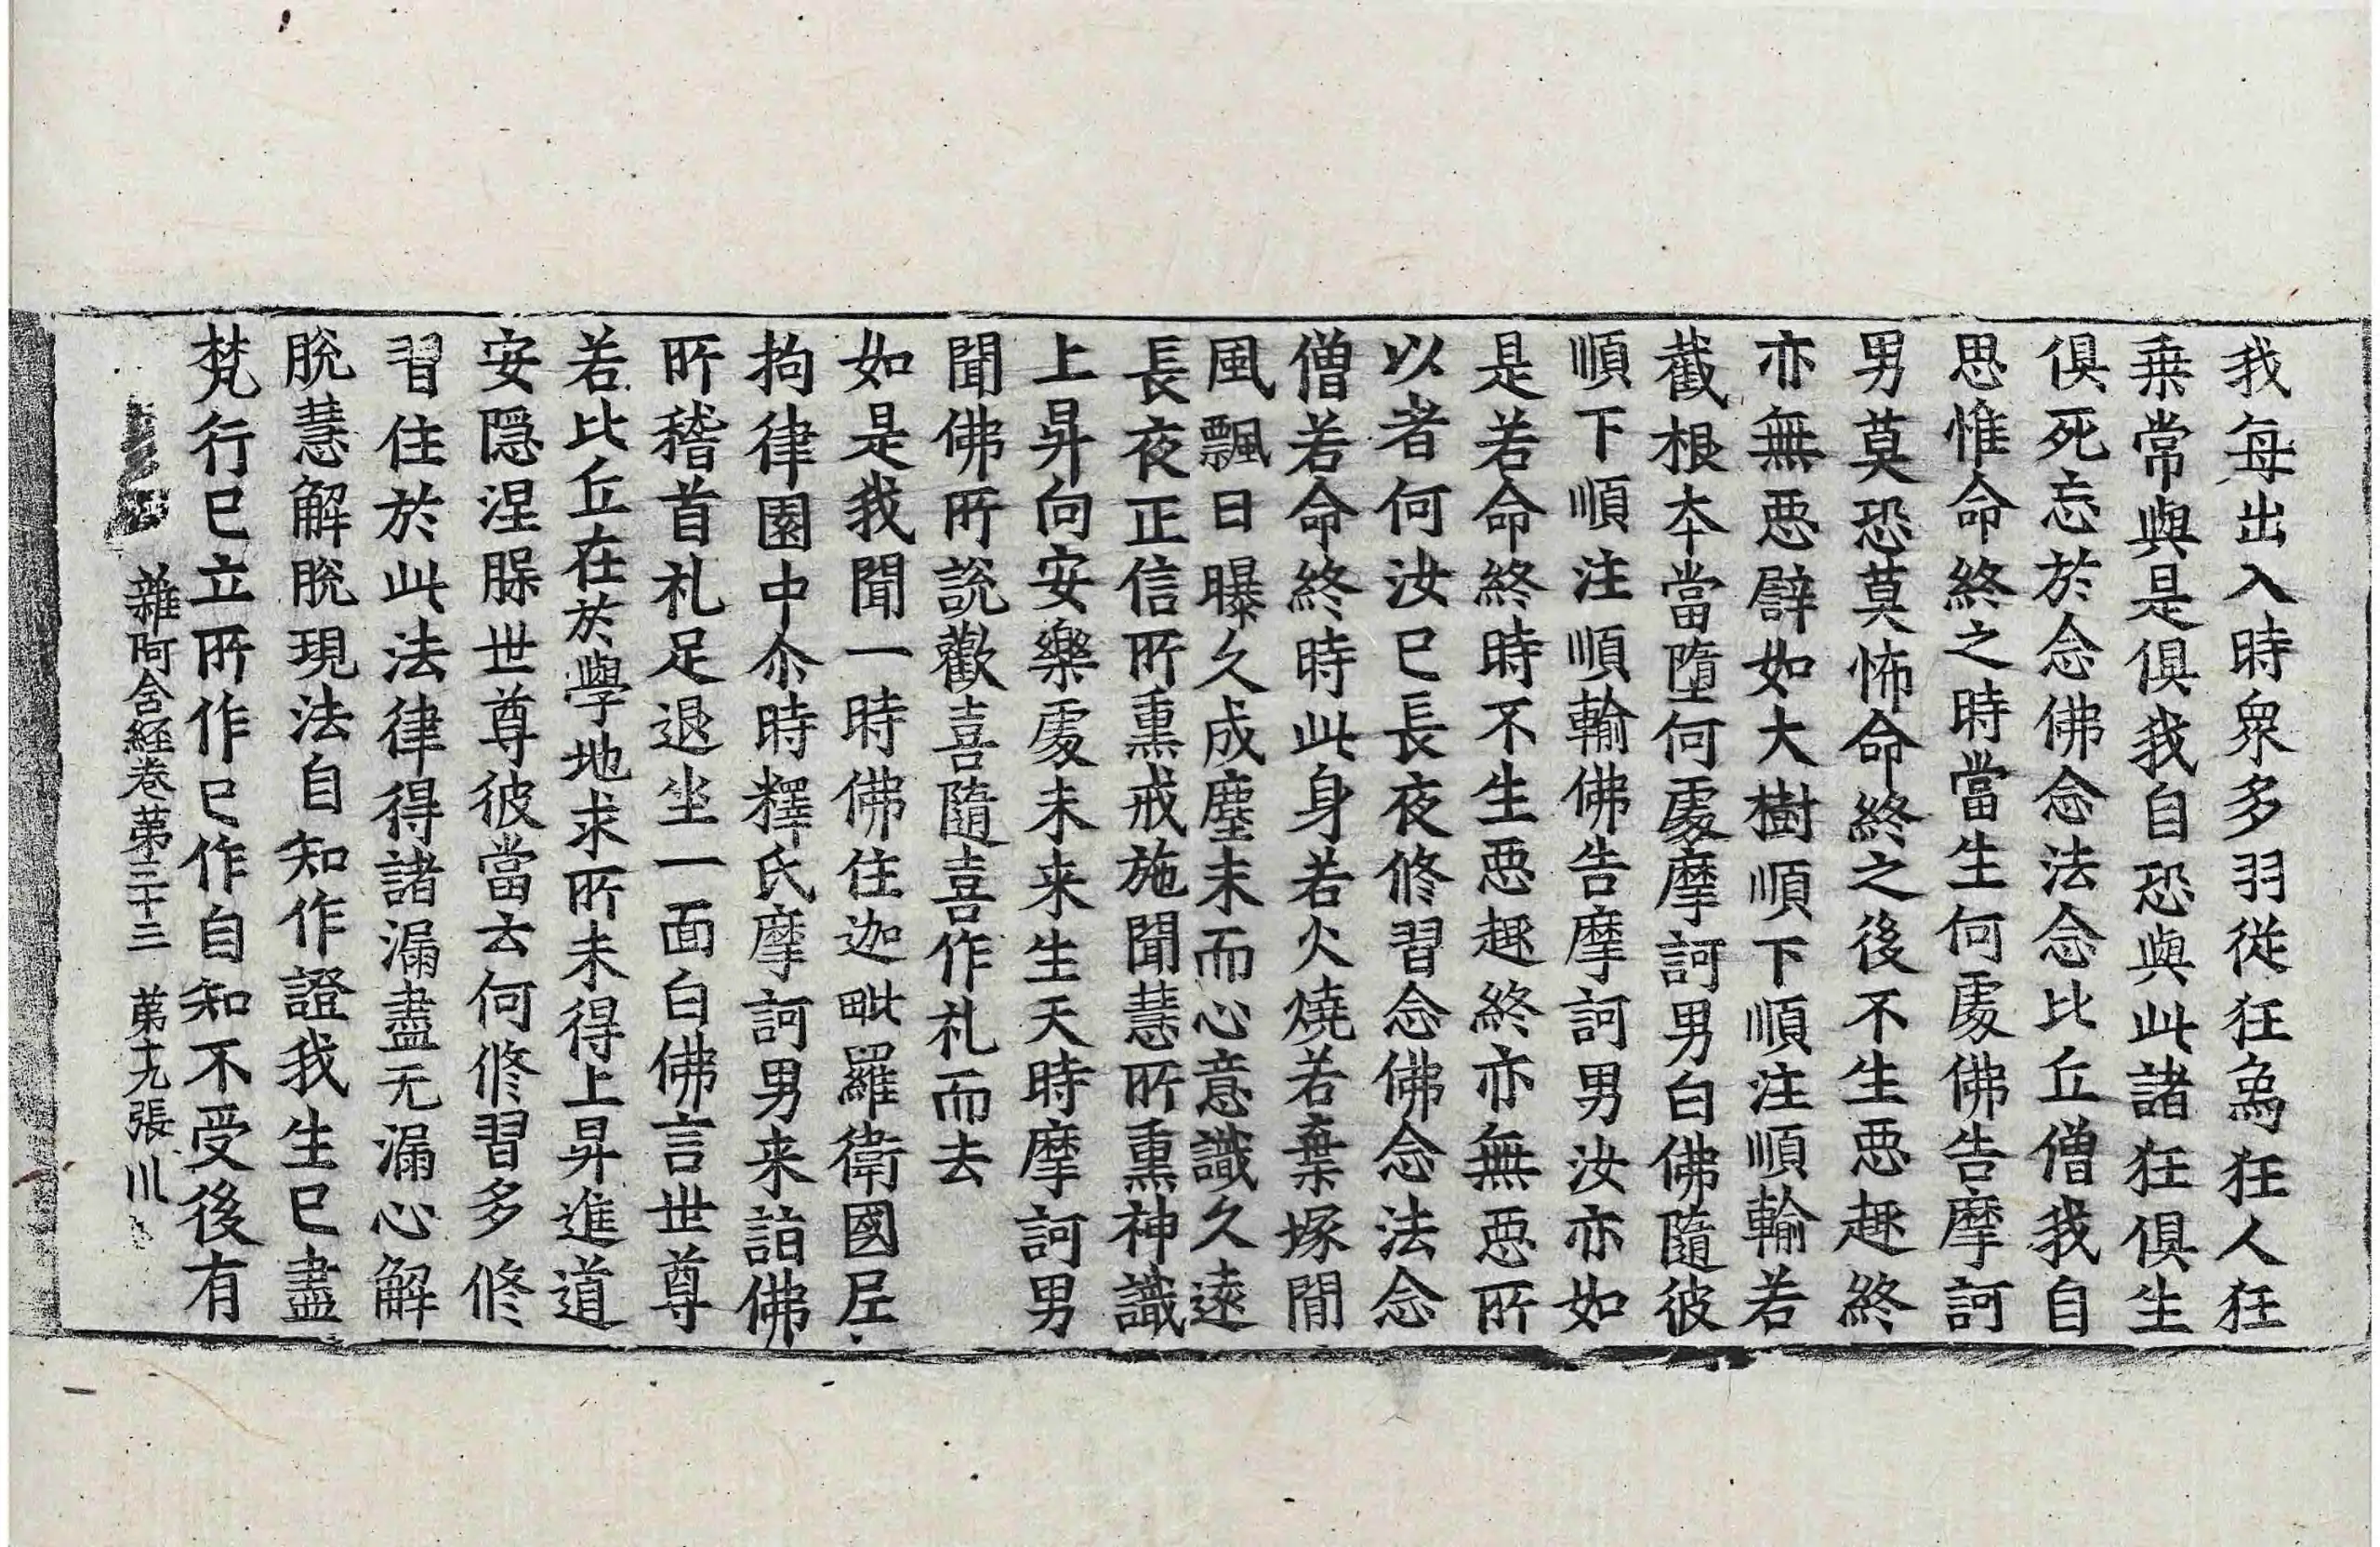 我每出入時衆多羽從狂爲狂人狂
乗常與是俱我自恐與此諸狂俱生
俱死忘於念佛念法念比丘僧我自
思惟命終之時當生何處佛告摩訶
男莫恐莫怖命終之後不生惡趣終
亦無惡譬如大樹順下順注順輸若
截根本當墮何處摩訶男白佛隨彼
順下順注順輸佛告摩訶男汝亦如
是若命終時不生惡趣終亦無惡所
以者何汝已長夜修習念佛念法念
僧若命終時此身若火燒若棄塚間
風飄日曝久成塵末而心意識久遠
長夜正信所熏戒施聞慧所熏神識
上昇向安樂處未来生天時摩訶男
聞佛所說歡喜隨喜作礼而去
如是我聞一時佛住迦毗羅衛國尼
拘律園中尒時釋氏摩訶男来詣佛
所稽首礼足退坐一面白佛言世尊
若比丘在於學地求所未得上昇進道
安隱涅槃世尊彼當云何修習多修
習住於此法律得諸漏盡无漏心解
脫慧解脫現法自知作證我生已盡
梵行已立所作已作自知不受後有
雜阿含經卷第三十三 第十九張 川